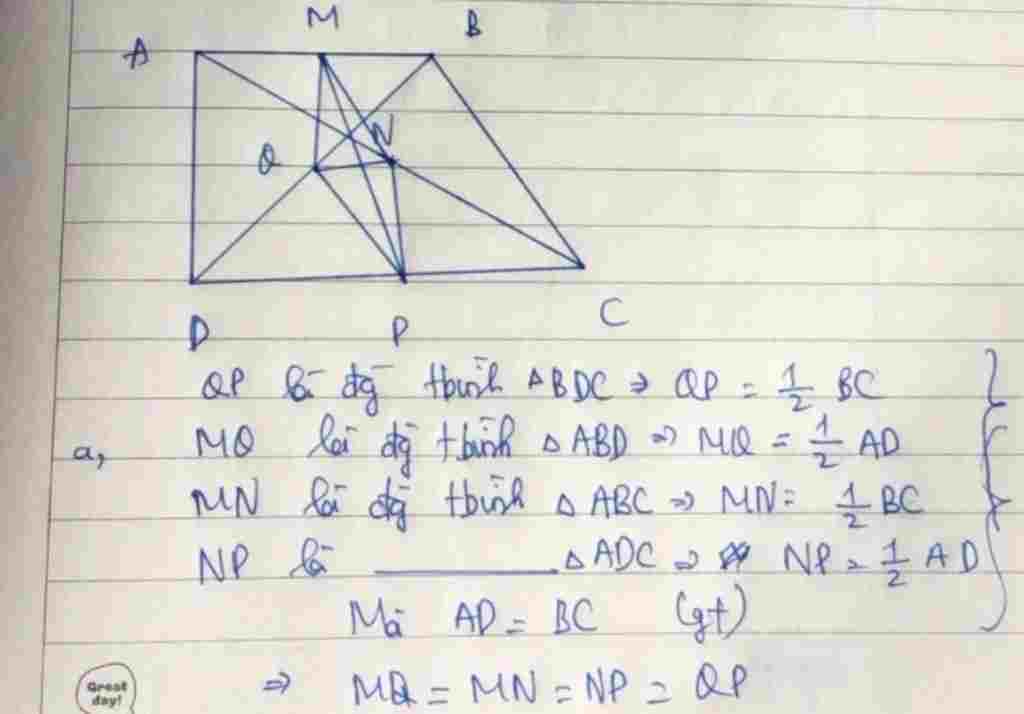 M B
A
Q N
D P C
QP là đg̀ tbình △BDC ⇒ QP = 1/2 BC
a, MQ là đg̀ tbình △ ABD ⇒ MQ = 1/2 AD
MN là đg̀ tbình △ ABC ⇒ MN = 1/2 BC
NP là ________ △ADC ⇒ NP = 1/2 AD
Mà AD = BC (gt)
⇒ MQ = MN = NP = QP
Great
day!